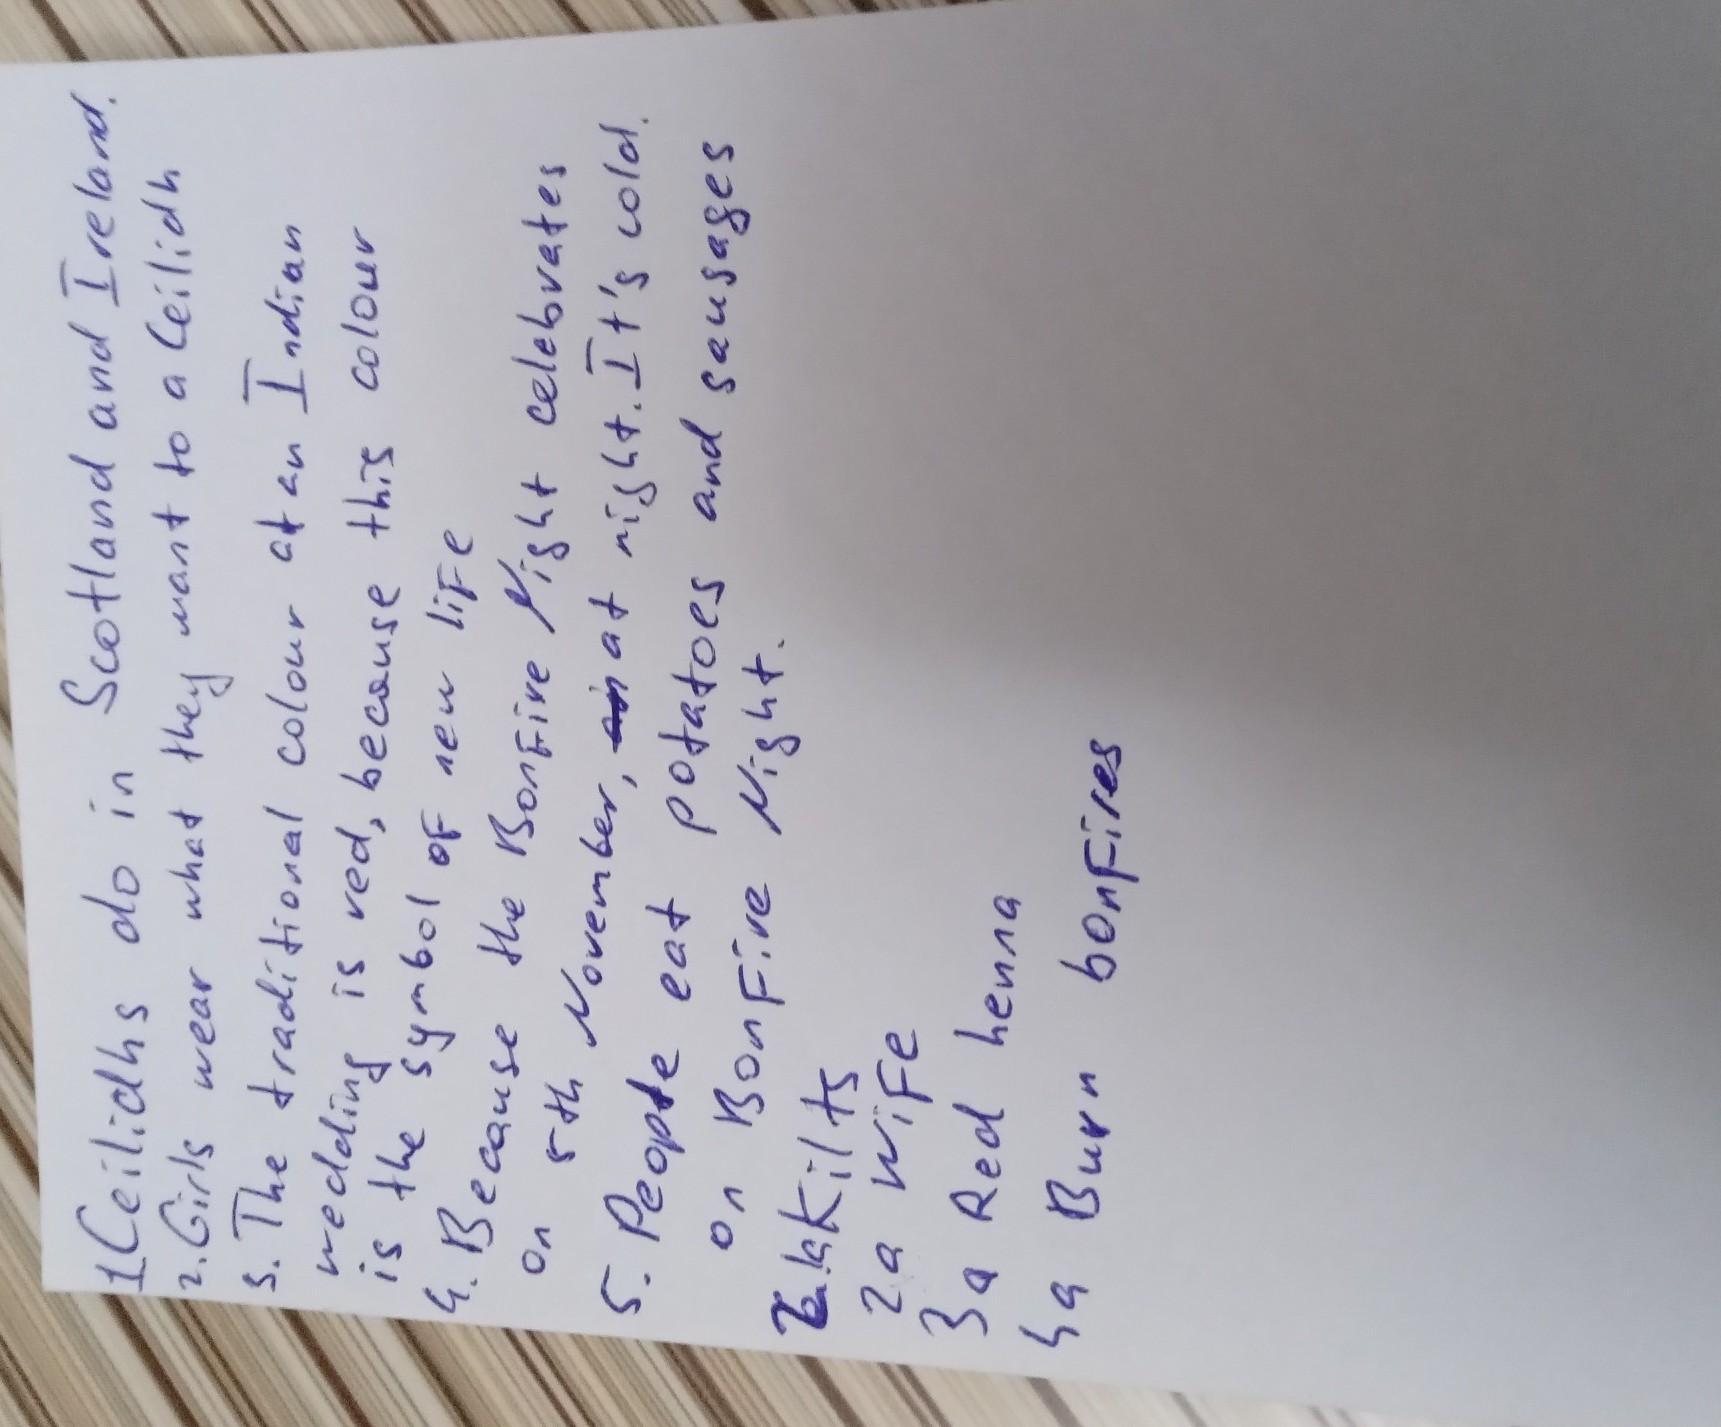 1 Ceilidhs do in Scotland and Ireland.
2. Girls wear what they want to a Ceilidh
3. The traditional colour at an Indian
wedding is red, because this colour
is the symbol of new life
4. Because the Bonfire Night celebrates
on 5th November, at night. It's cold.
5. People eat potatoes and sausages
on Bonfire Night.
1a Kilts
2a Wife
3a Red henna
4a Burn bonfires